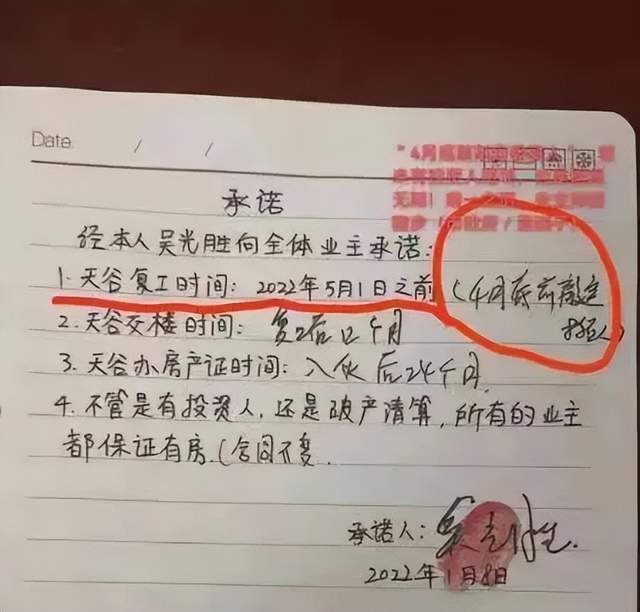 Date / /
承诺
经本人吴光胜向全体业主承诺:
1. 天谷复工时间: 2022年5月1日之前 (4月底前敲定
投资人)
2. 天谷交楼时间: 复工后12个月
3. 天谷办房产证时间: 入伙后24个月.
4. 不管是有投资人, 还是破产清算, 所有的业主
都保证有房. (合同不变.
承诺人: 吴光胜
2022年1月8日